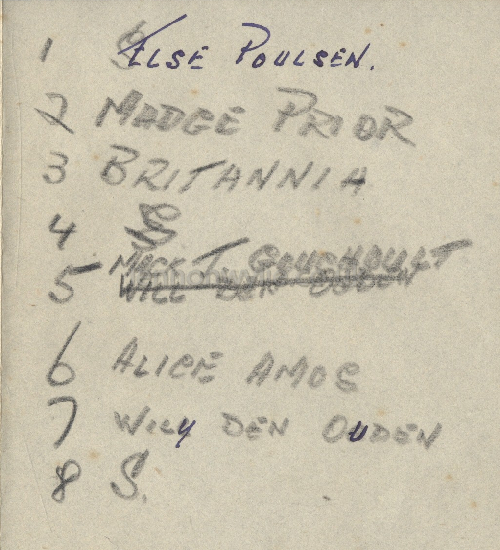 1 ELSE POULSEN.
2 MADGE PRIOR
3 BRITANNIA
4 S
5
WILL DEN OUDEN
6 ALICE AMOS
7 WILY DEN OUDEN
8 S.